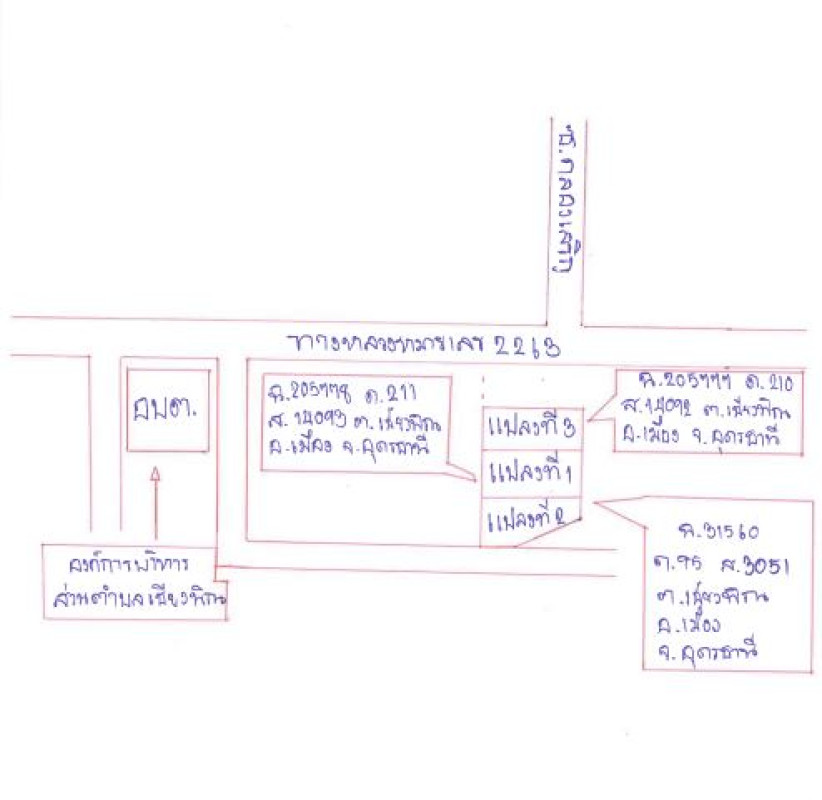 ซ.คลองเจริญ
ทางหลวงหมายเลข 2263
อบต.
ฉ.205778 ด.211
ส.14093 ต.เชียงพิณ
อ.เมือง จ.อุดรธานี
ฉ.205777 ด.210
ส.14092 ต.เชียงพิณ
อ.เมือง จ.อุดรธานี
แปลงที่ 3
แปลงที่ 1
แปลงที่ 2
องค์การบริหาร
ส่วนตำบลเชียงพิณ
ฉ.31560
ด.95 ส.3051
ต.เชียงพิณ
อ.เมือง
จ.อุดรธานี